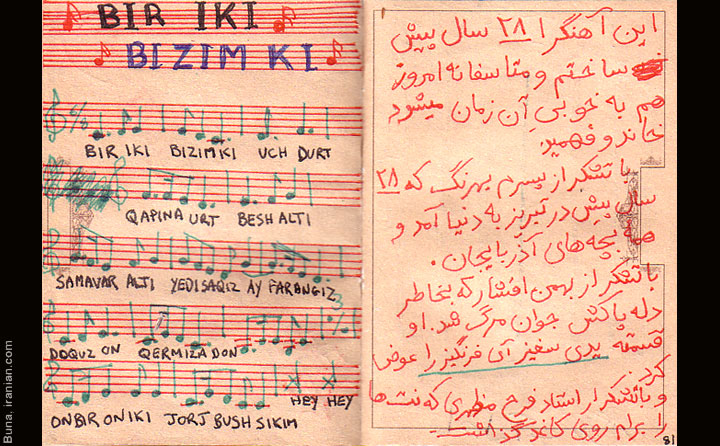 BIR IKI
BIZIM KI
6/8
BIR IKI BIZIMKI UCH DURT
QAPINA URT BESH ALTI
SAMAVAR ALTI YEDI SAQIZ AY FARANGIZ
DOQUZ ON QERMIZA DON
HEY HEY
ONBIR ONIKI JORJ BUSH SIKIM
این آهنگرا ۲۸ سال پیش
ساختم و متاسفانه امروز
هم به خوبیِ آن زمان میشود
خاند و فهمید.
با تشکر از پسرم بهرنگ که ۲۸
سال پیش در تبریز به دنیا آمد و
همه بچه های آذربایجان.
با تشکر از بهمن افشار که بخاطر
دله پاکش جوان مرگ شد. او
قسمته یدی سغیز آی فرنگیز را عوض
کرد.
و با تشکر از استاد فرخ که نت ها
را برام روی کاغذ گذاشت.
81
Buna, iranian.com